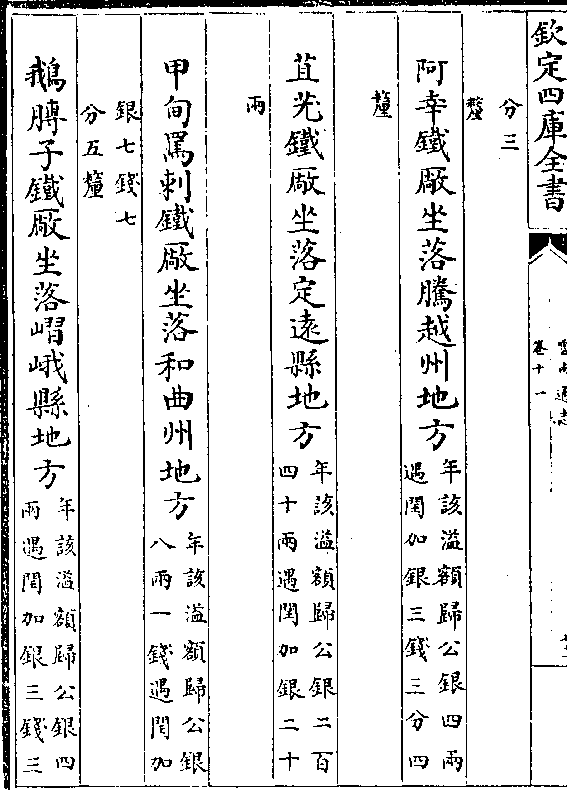 欽定四庫全書
卷十一
分三
釐
阿幸鐵厰坐落騰越州地方
年該溢額歸公銀四兩
遇閏加銀三錢三分四
釐
苴茪鐵厰坐落定遠縣地方
年該溢額歸公銀二百
四十兩遇閏加銀二十
兩
甲甸罵剌鐵厰坐落和曲州地方
年該溢額歸公銀
八兩一錢遇閏加
銀七錢七
分五釐
鵝膊子鐵厰坐落嶍峨縣地方
年該溢額歸公銀四
兩遇閏加銀三錢三